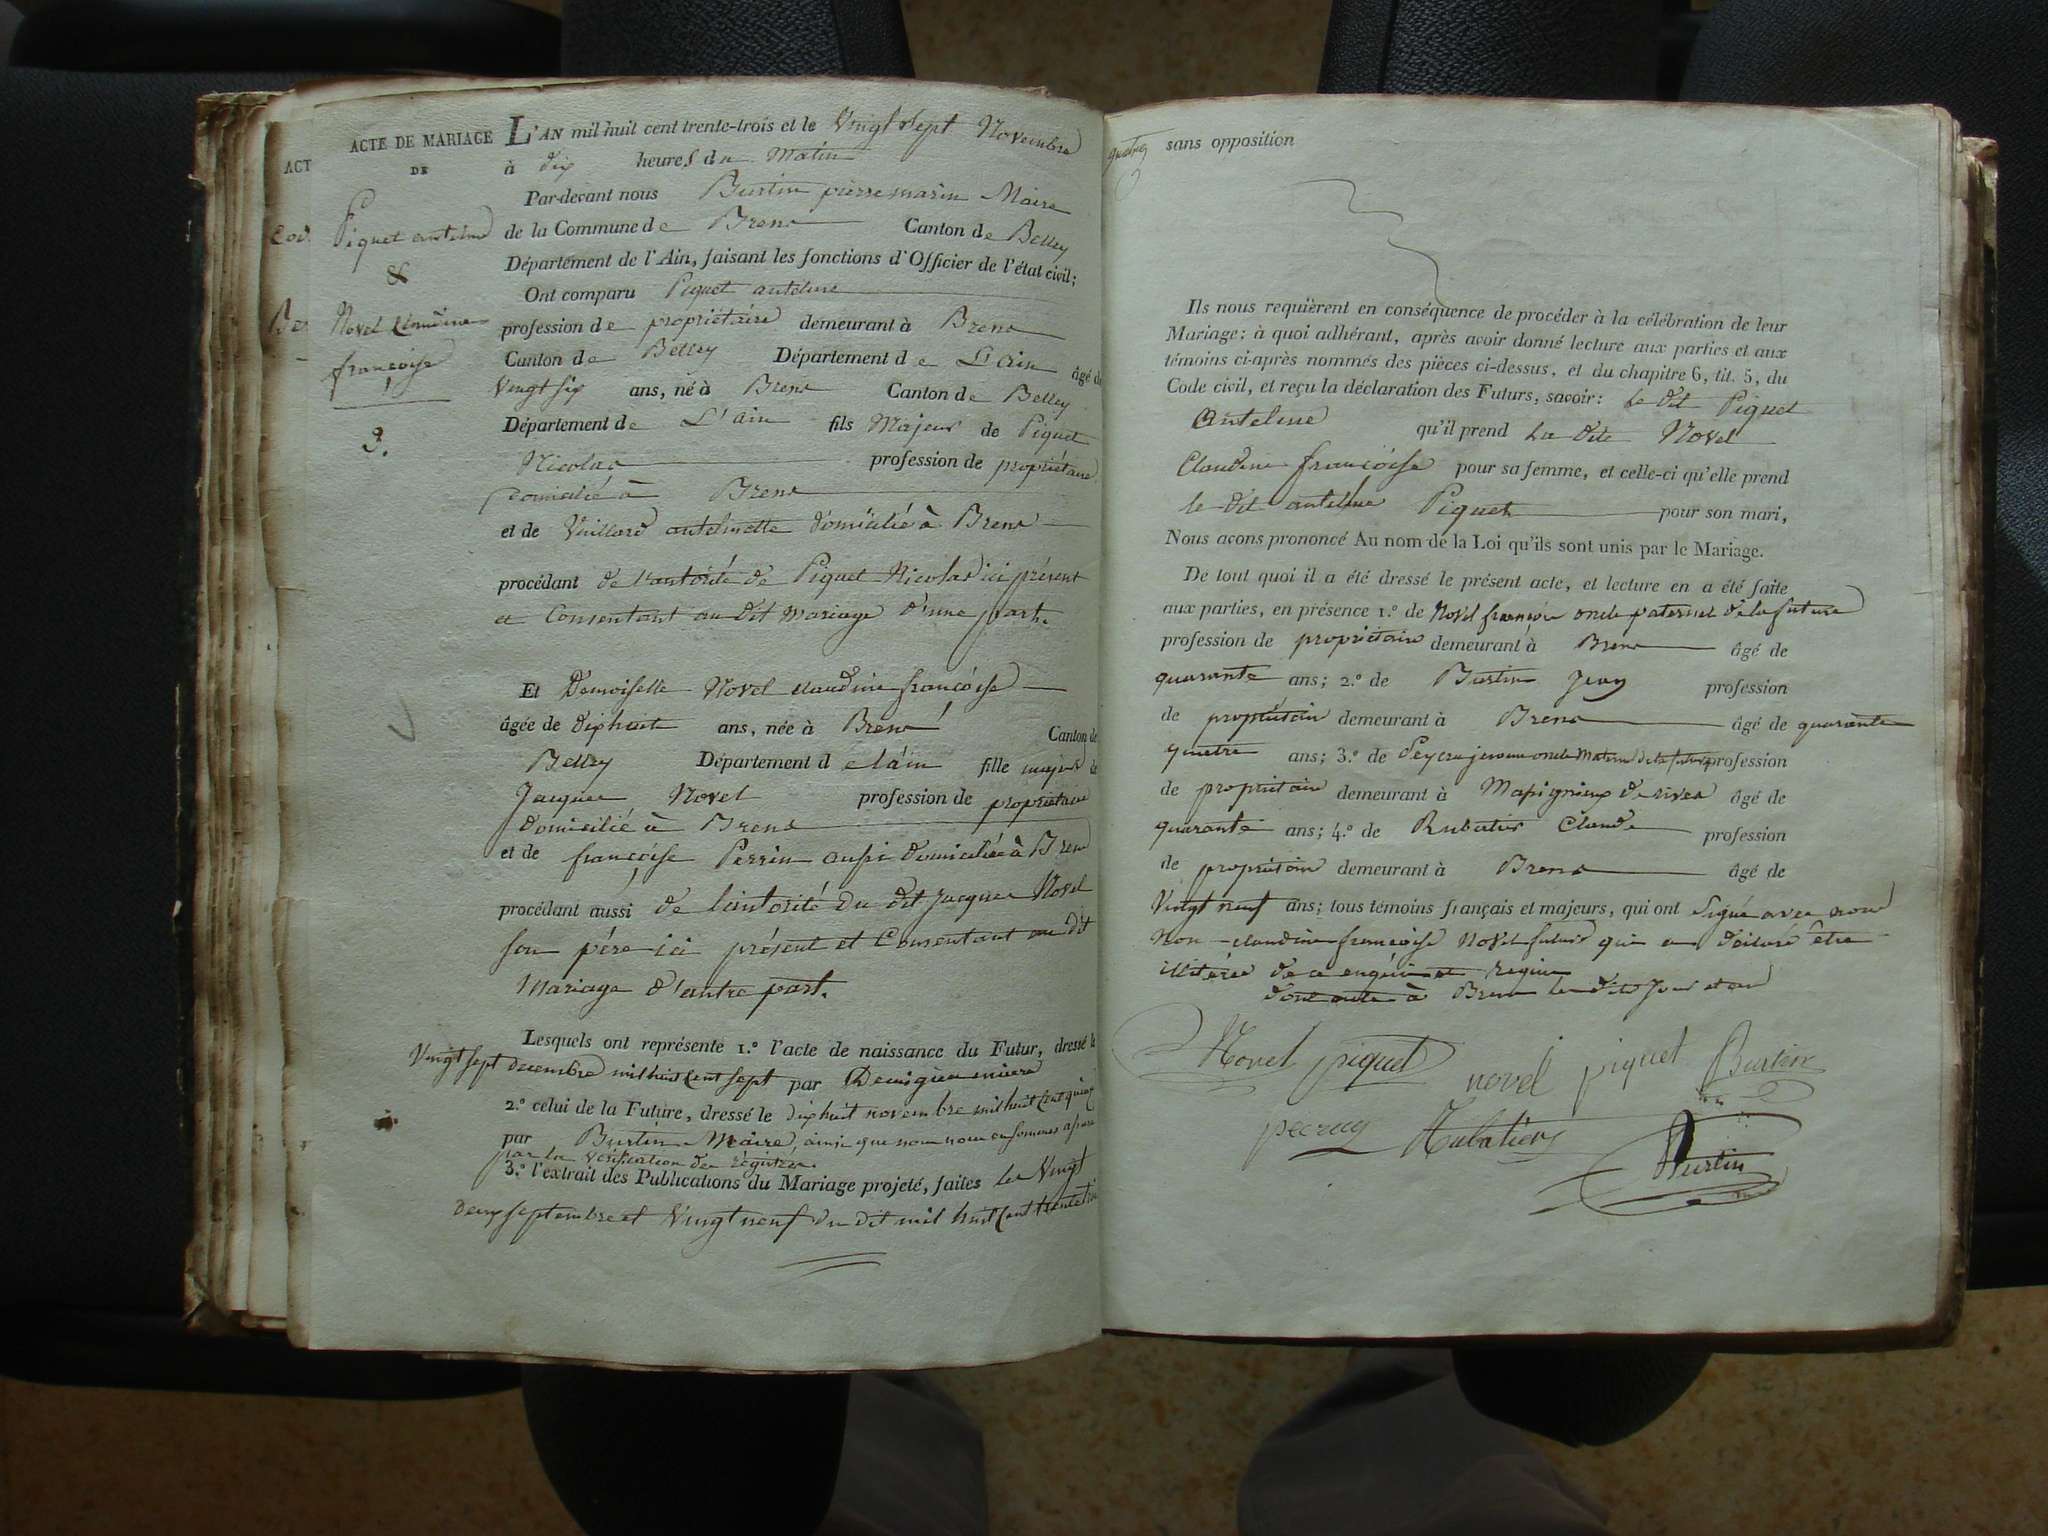 ACT
Bes
ACTE DE MARIAGE
DE
Piquet antelme
&
Novel Claudine
françoise
9.
L'AN mil huit cent trente-trois et le Vingt Sept Novembre
à dix heures du Matin
Par-devant nous Burtin pierre marin Maire
de la Commune de Brens Canton de Belley
Département de l'Ain, faisant les fonctions d'Officier de l'état civil;
Ont comparu Piquet antelme
profession de propriétaire demeurant à Brens
Canton de Belley Département de L'ain âgé de
Vingt six ans, né à Brens Canton de Belley
Département de L'ain fils Majeur de Piquet
Nicolas profession de propriétaire
Domicilié à Brens
et de Vuillard antelmette domicilié à Brens
procédant de l'autorité de Piquet Nicolas ici présent
et Consentant au dit mariage d'une part.
Et Demoiselle Novel claudine françoise
âgée de dixhuit ans, née à Brens Canton de
Belley Département de lain fille majeur de
Jacques Novel profession de propriétaire
domicilié à Brens
et de françoise Perrin aussi domiciliée à Brens
procédant aussi de lautorité du dit Jacques Novel
son père ici présent et Consentant au dit
Mariage d'autre part.
Lesquels ont représente 1.º l'acte de naissance du Futur, dressé le
Vingt sept decembre mil huit Cent sept par
2.º celui de la Future, dressé le dixhuit novembre mil huit Cent quinz
par Burtin Maire, ainsi que nous nous en sommes assuré
par la vérification des régistres.
3.º l'extrait des Publications du Mariage projeté, faites les Vingt
deux septembre et Vingt neuf du dit mil huit Cent trente trois
sans opposition
Ils nous requièrent en conséquence de procéder à la célébration de leur
Mariage: à quoi adhérant, après avoir donné lecture aux parties et aux
témoins ci-après nommés des pièces ci-dessus, et du chapitre 6, tit. 5, du
Code civil, et reçu la déclaration des Futurs, savoir: le dit Piquet
Antelme qu'il prend La dite Novel
Claudine françoise pour sa femme, et celle-ci qu'elle prend
le dit antelme Piquet pour son mari,
Nous avons prononcé Au nom de la Loi qu'ils sont unis par le Mariage.
De tout quoi il a été dressé le présent acte, et lecture en a été faite
aux parties, en présence 1.º de Novel françois oncle paternel de la future
profession de propriétaire demeurant à Brens âgé de
quarante ans; 2.º de Burtin Jean profession
de propriétaire demeurant à Brens âgé de quarante
quatre ans; 3.º de oncle Maternel de la future profession
de propriétaire demeurant à Massignieux de rives âgé de
quarante ans; 4.º de Rubatier Claude profession
de propriétaire demeurant à Brens âgé de
Vingt neuf ans; tous témoins français et majeurs, qui ont Signé avec nous
Non claudine françoise Novel future qui a déclaré être
illitérée de ce enquise et requise
dont acte à Brens les dits Jour et an
Novel piquet novel piquet Burtin
Rubatier
Burtin